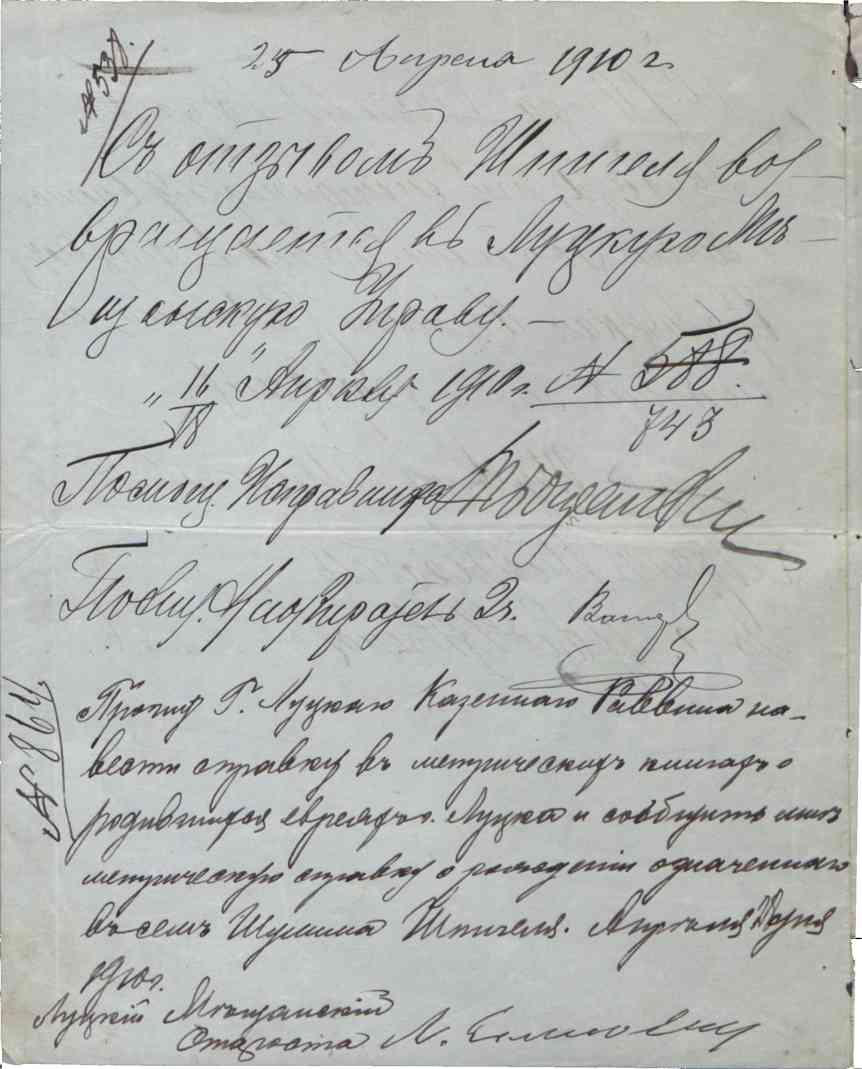 № 538.
25 Апреля 1910 г.
Съ отзывомъ Шпигеля воз-
вращается въ Луцкую Мѣ-
щанскую Управу. —
„16/18" Апрѣля 1910 г. № 588.
743
Помощ. Исправника
Помощ. Надзирателя
№ 864
Прошу Г. Луцкаго Казеннаго Раввина на-
вести справку въ метрическихъ книгахъ о
родившихся евреяхъ г. Луцка и сообщить мнѣ
метрическую справку о рождении означеннаго
въ семъ Шулима Шпигеля. Апрѣля дня
1910 г.
Луцкій Мѣщанскій
Староста